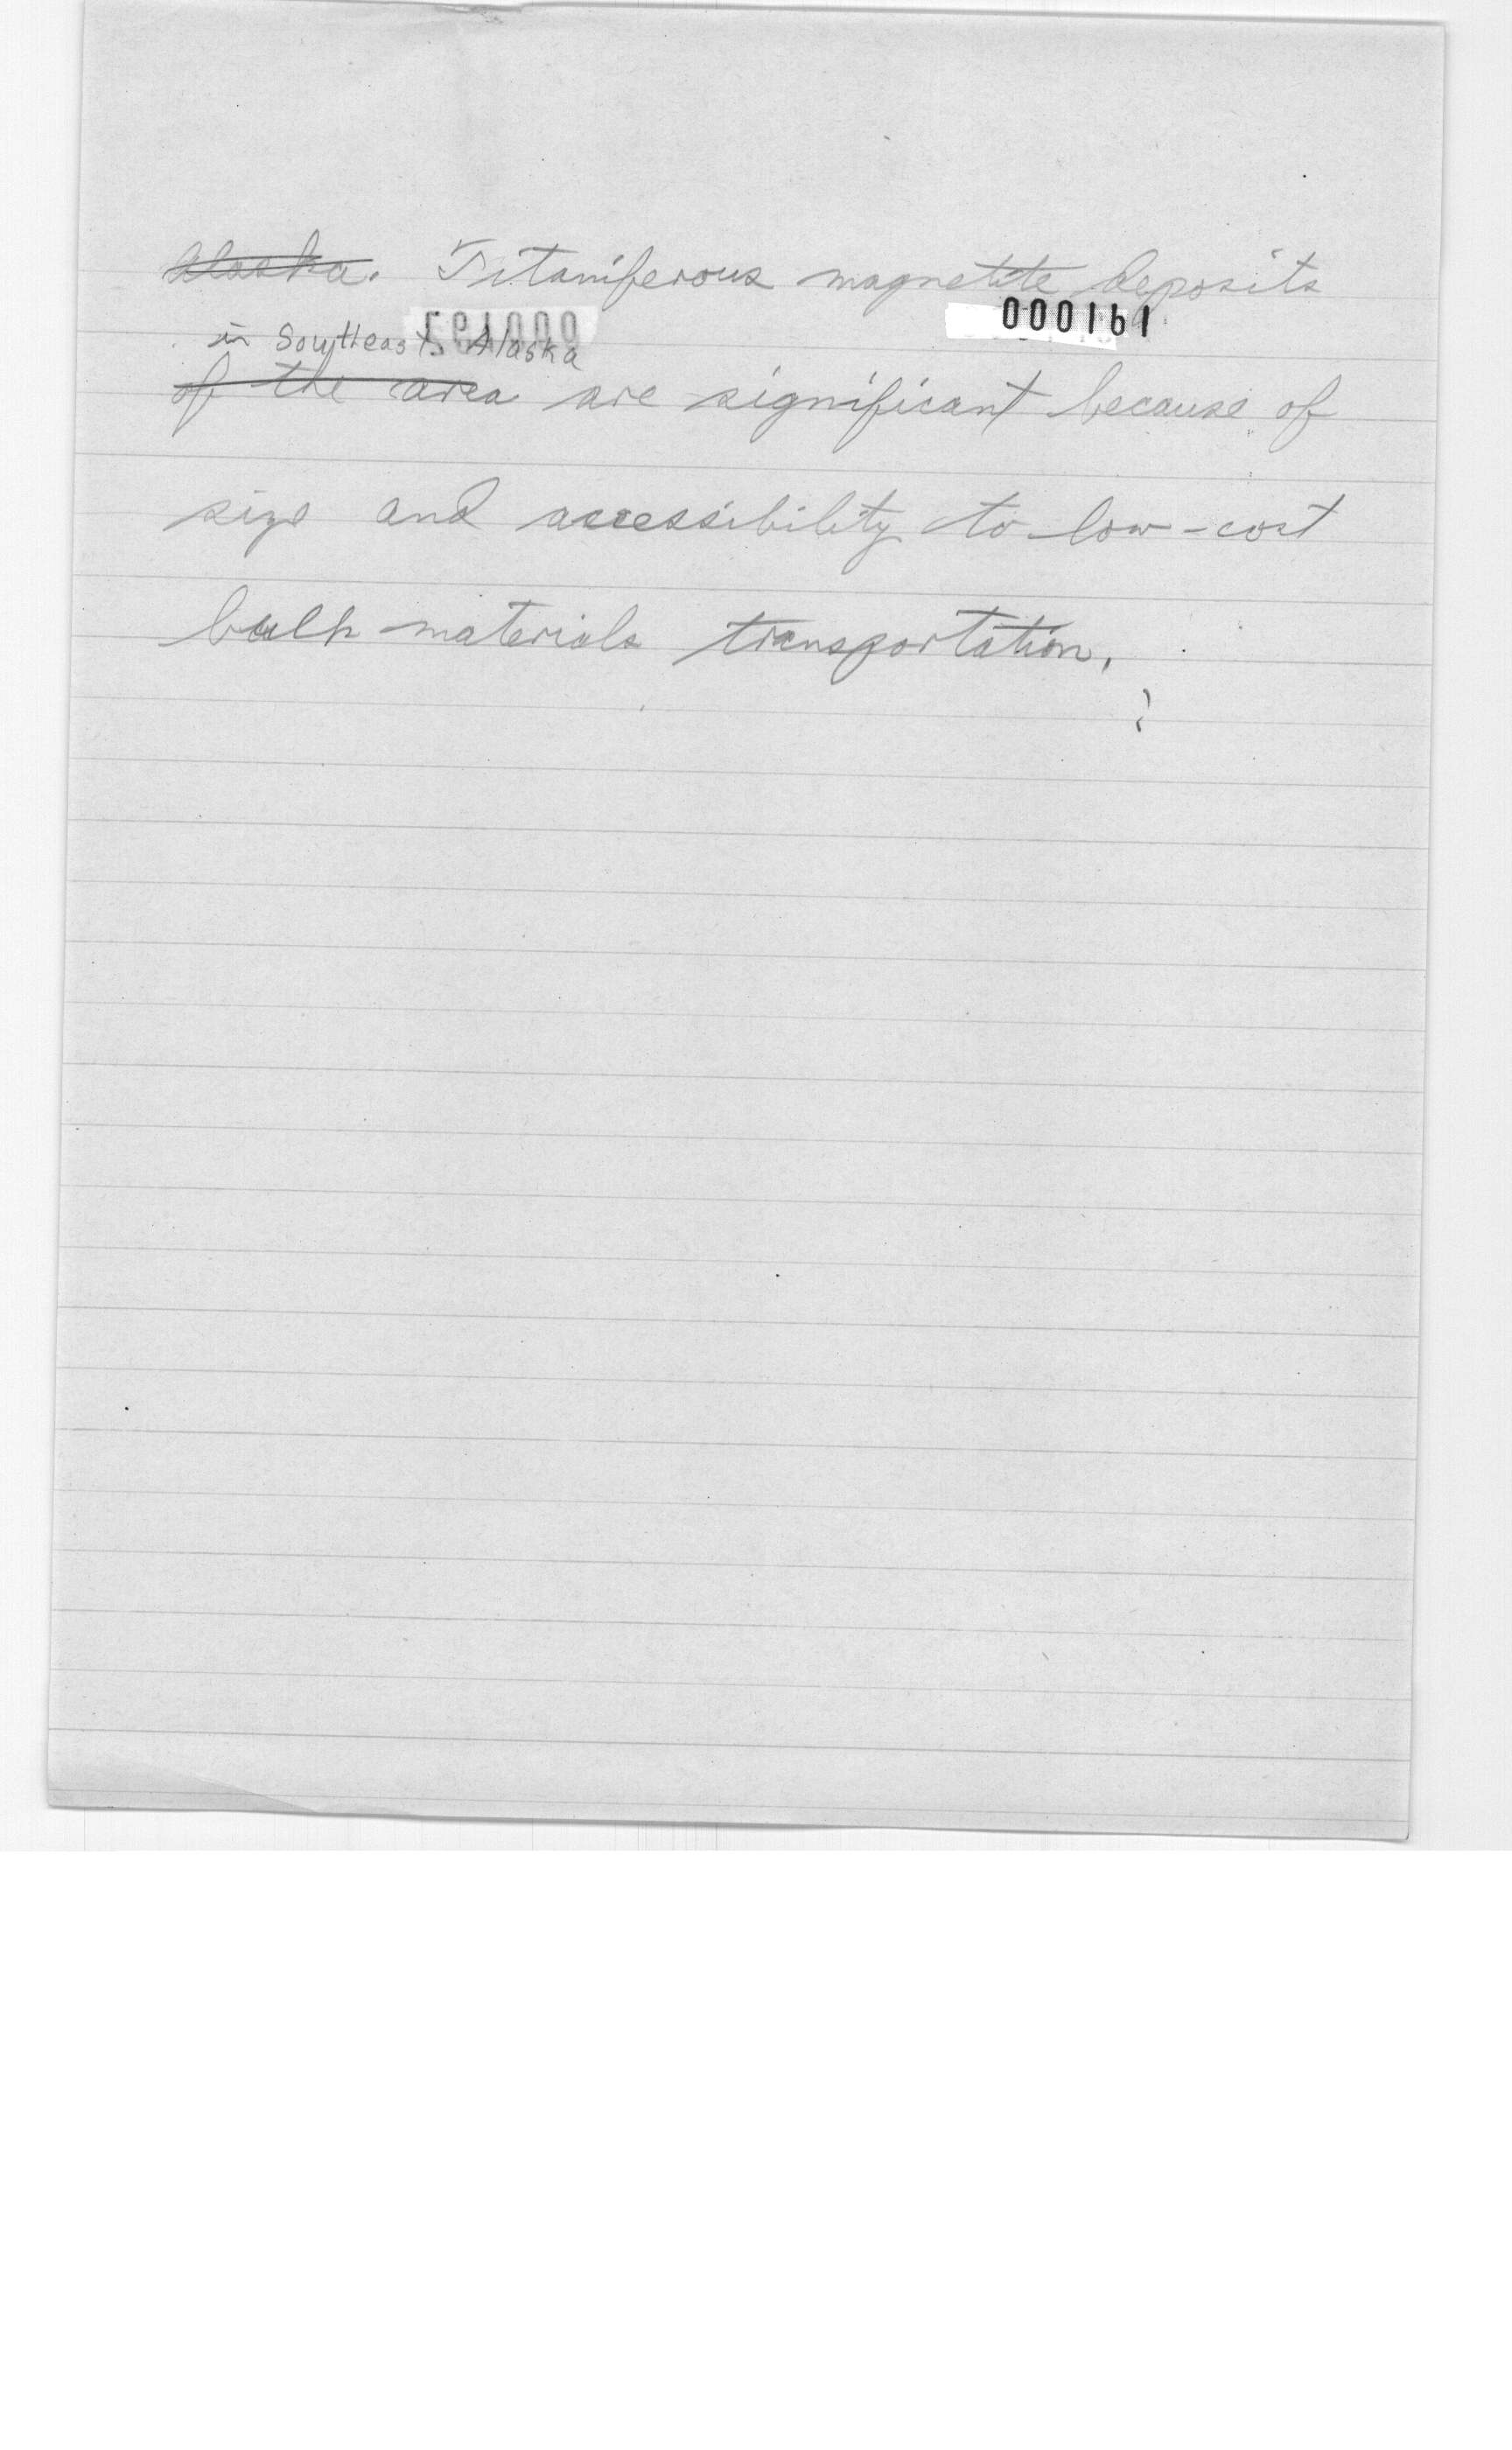 Alaska. Titaniferous magnetite deposits
000161
in Southeast Alaska
of the area are significant because of
size and accessibility to low-cost
bulk materials transportation.